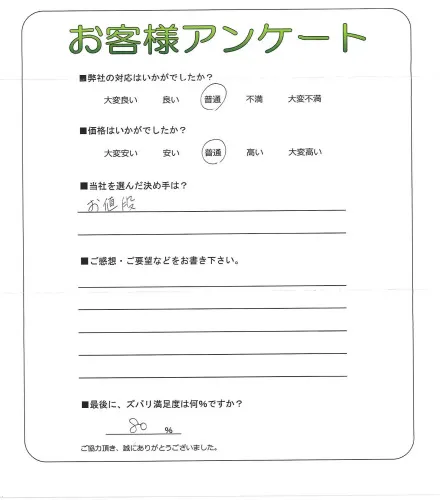 お客様アンケート
■弊社の対応はいかがでしたか？
大変良い 良い 普通 不満 大変不満
■価格はいかがでしたか？
大変安い 安い 普通 高い 大変高い
■当社を選んだ決め手は？
お値段
■ご感想・ご要望などをお書き下さい。
■最後に、ズバリ満足度は何%ですか？
80 %
ご協力頂き、誠にありがとうございました。